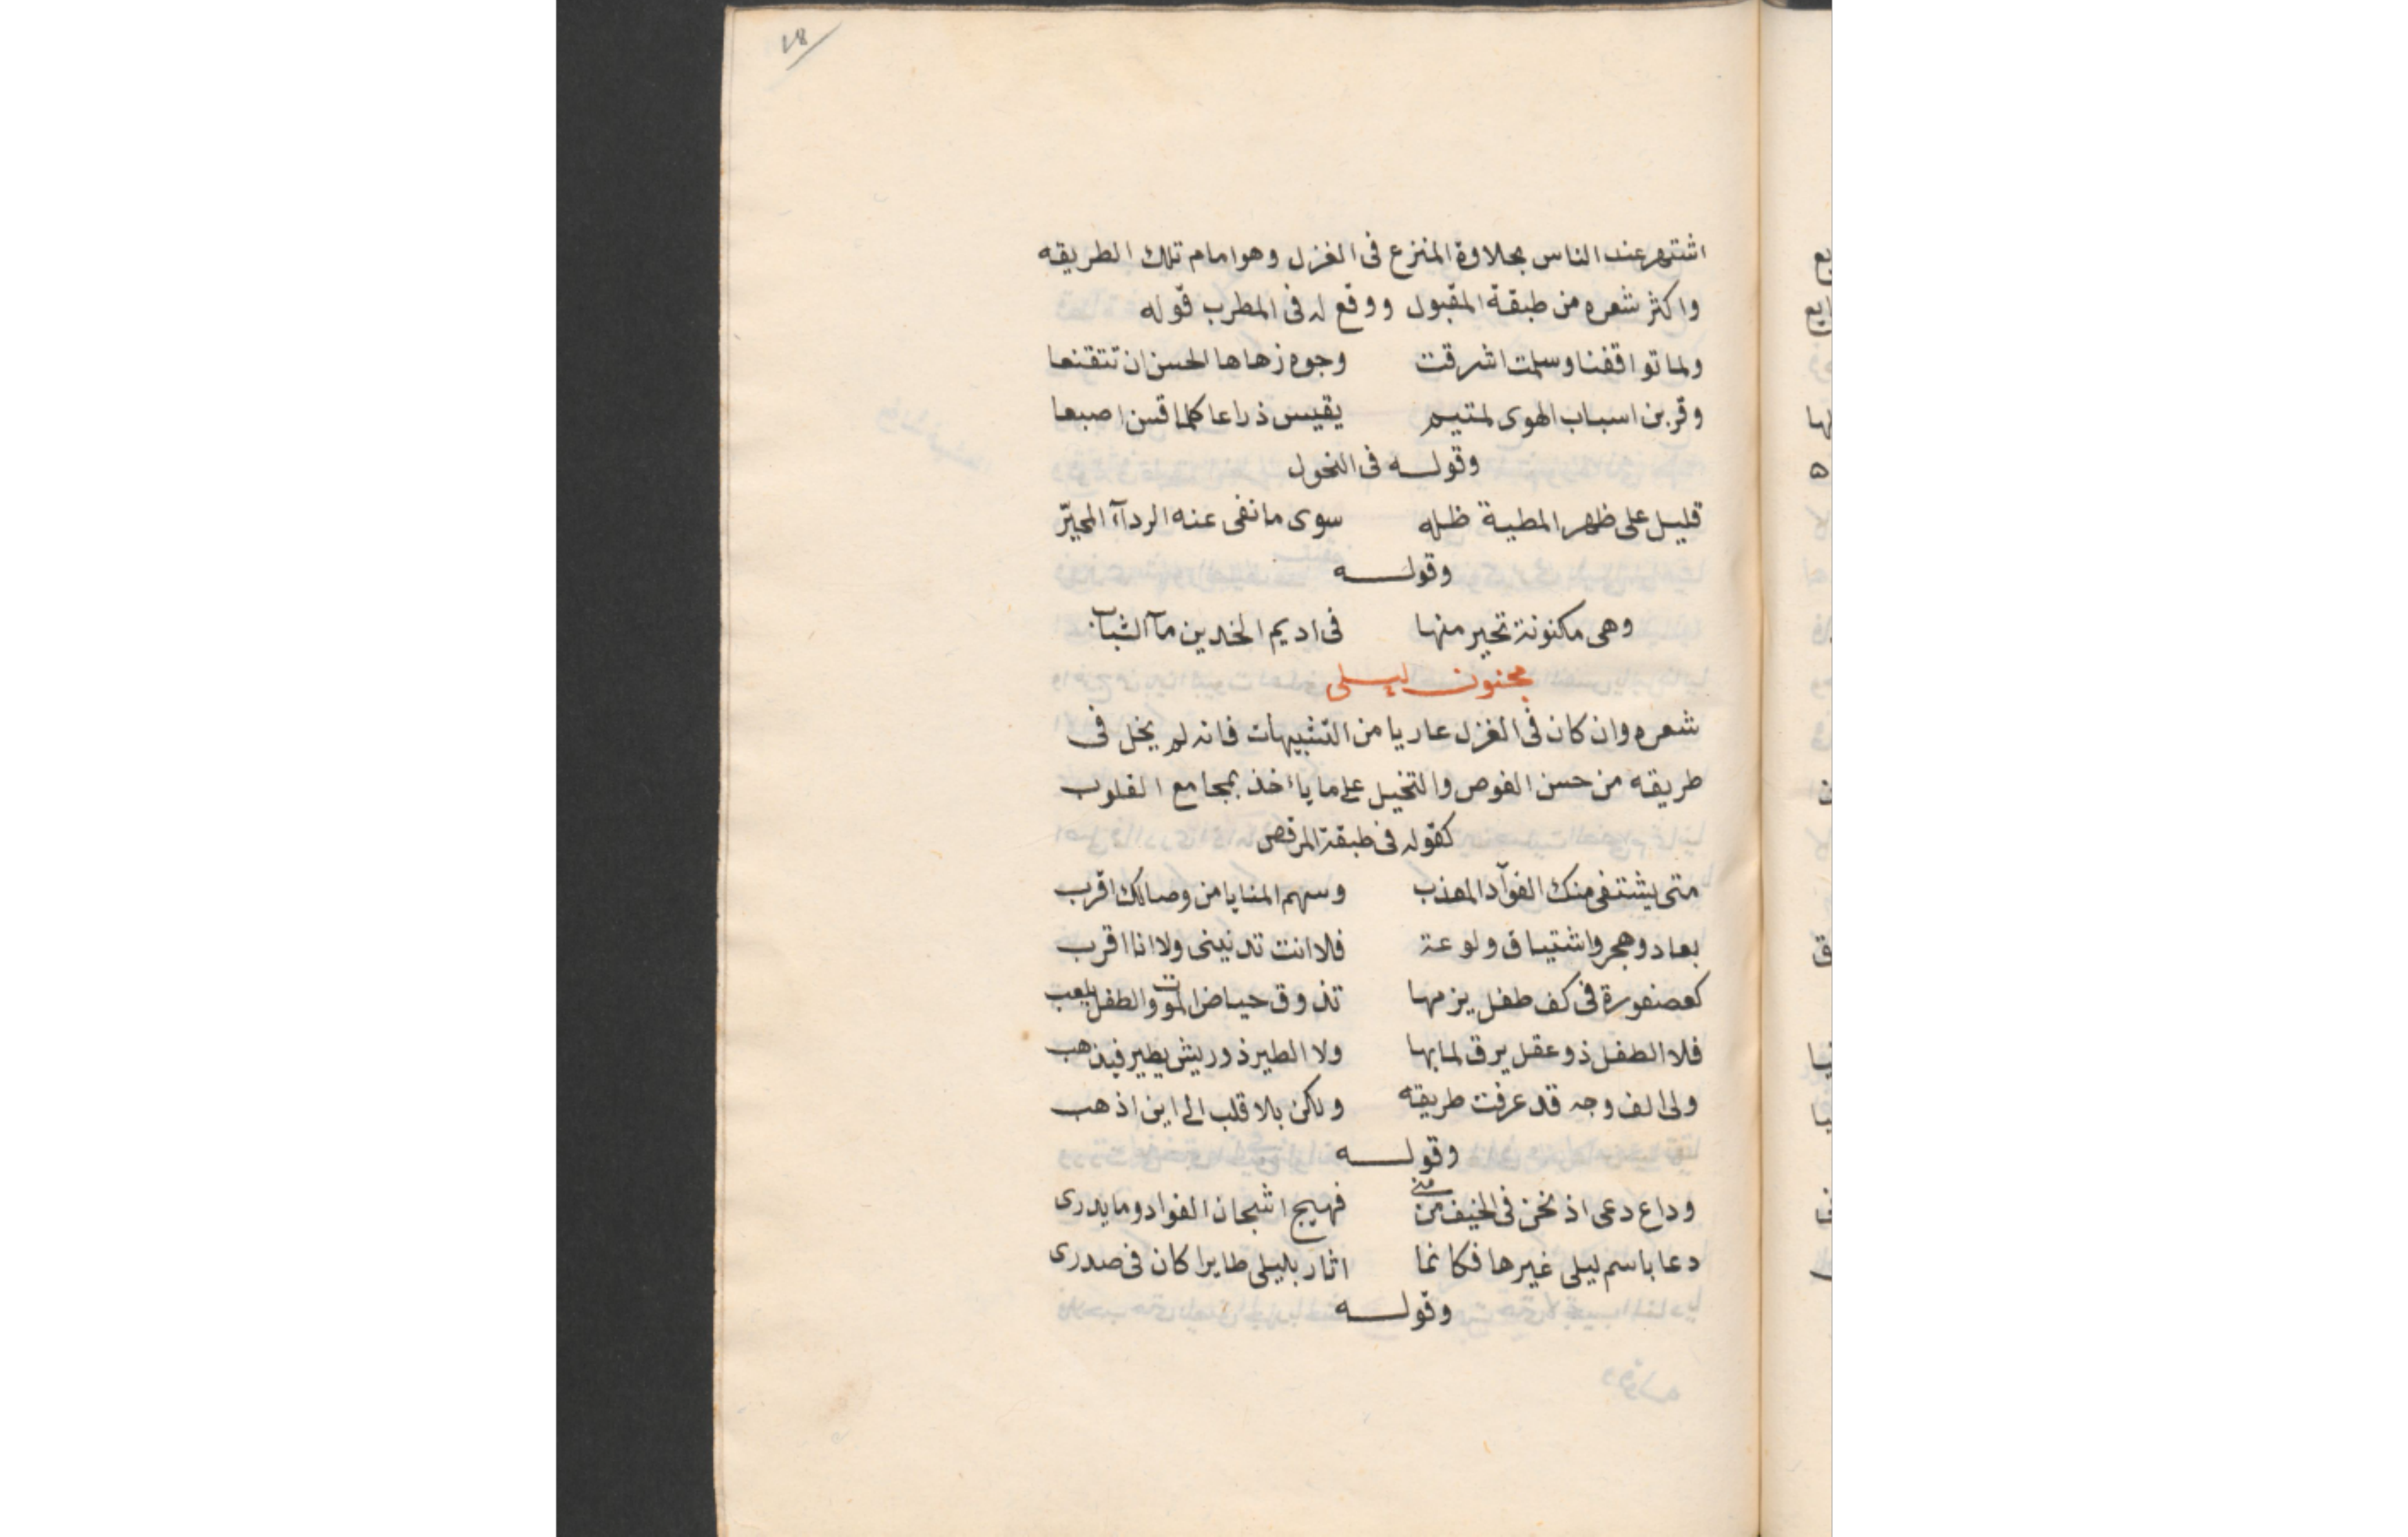 ١٨
اشتهر عند الناس بحلاوة المنزع فى الغزل وهو امام تلك الطريقه
واكثر شعره من طبقة المقبول ووقع له فى المطرب قوله
ولما تواقفنا وسلمت اشرقت وجوه زهاها الحسن ان تتقنعا
وقربن اسباب الهوى لمتيم يقيس ذراعا كلما قسن اصبعا
وقوله فى النحول
قليل على ظهر المطية ظله سوى ما نفى عنه الردآء المحبّر
وقوله
وهى مكنونة تحير منها فى اديم الخدين مآ الشباب
مجنون ليلى
شعره وان كان فى الغزل عاريا من التشبيهات فانه لم يخل فى
طريقه من حسن الغوص والتخيل على ما يأخذ بمجامع القلوب
كقوله فى طبقة المرقص
متى يشتفى منك الفوآد المعذب وسهم المنايا من وصالك اقرب
بعاد وهجر واشتياق ولوعة فلا انت تدنينى ولا انا اقرب
كعصفورة فى كف طفل يزمها تذوق حياض الموت والطفل يلعب
فلا الطفل ذو عقل يرق لما بها ولا الطير ذو ريش يطير فيذهب
ولى الف وجه قد عرفت طريقه ولكن بلا قلب الى اين اذهب
وقوله
وداع دعى اذ نحن فى الخيف من منى فهيج اشجان الفواد وما يدرى
دعا باسم ليلى غيرها فكانما اثار بليلى طايرا كان فى صدرى
وقوله